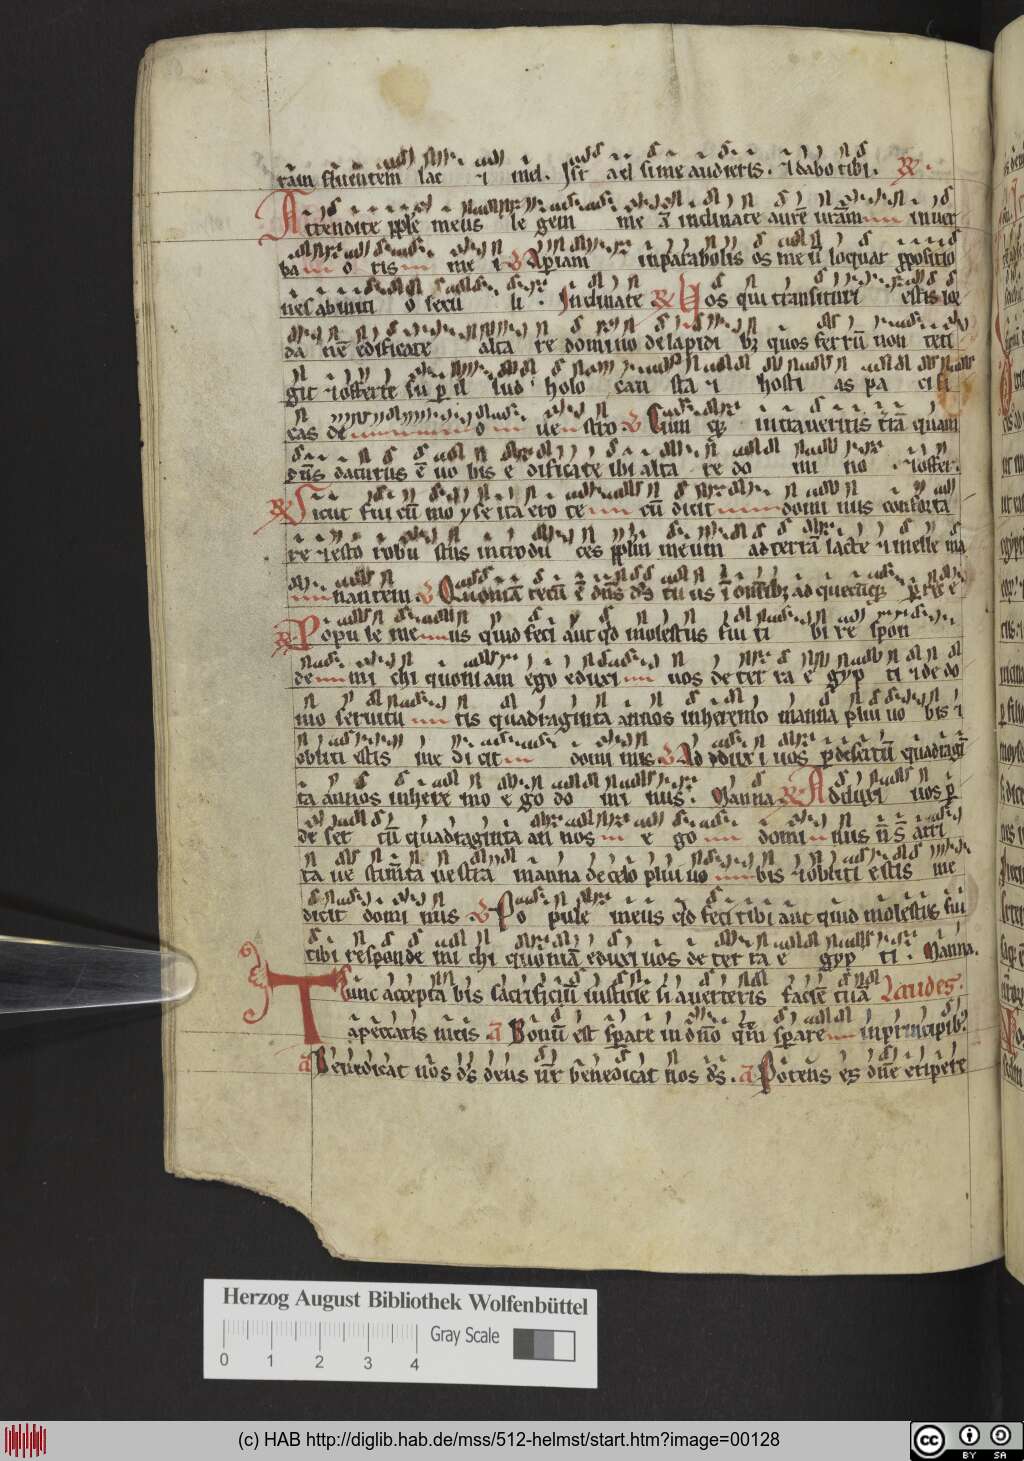 ram fluentem lac ⁊ mel. Isr a el si me audieris. ⁊ dabo tibi. R.
Attendite pple meus le gem me ā inclinate aurē vrām in ver
ba o ris me i V Aperiam in parabolis os meū loquar ppositio
nes ab initi o secu li. Inclinate R Vos qui transituri estis ior
da nē edificate alta re domino de lapidi bꝫ quos ferrū non teti
git ⁊ offerte sup il lud holo cau sta ⁊ hosti as pa ci fi
cas de o ue stro V Cum qꝫ intraueritis trā quam
dns daturus ē uo bis e dificate ibi alta re do mi no. ⁊ offer.
R Sicut fui cū mo y se ita ero te cū dicit domi nus conforta
re ⁊ esto robu stus introdu ces pplm meum ad terrā lacte ⁊ melle ma
nantem. V Quoniā tecū ē dns ds tu us ī omibꝫ ad quecūqꝫ prex e
R Popu le me us quid feci aut qd molestus fui ti bi re spon
de mi chi quoniam ego eduxi uos de ter ra e gyp ti ⁊ de do
mo seruitu tis quadraginta annos in heremo manna plui uo bis ⁊
obliti estis me di cit domi nus. V Ad duxi uos p desertū quadragī
ta annos in here mo e go do mi nus. Manna R Adduxi uos p
de ser tū quadraginta an nos e go domi nus n s attri
ta ue stimta uestra manna de celo plui uo bis ⁊ obliti estis me
dicit domi nus. V Po pule meus qd feci tibi aut quid molestus fui
tibi responde mi chi quoniā eduxi uos de ter ra e gyp ti. Manna.
Tunc accepta bis sacrificiū iusticie si auerteris faciē tuā Laudes.
a peccatis meis. ā Bonū est sperare in dno qm sperare in principibꝫ
ā Benedicat nos ds deus nr benedicat nos ds. ā Potens es dne eripere
Herzog August Bibliothek Wolfenbüttel
Gray Scale
0 1 2 3 4
(c) HAB http://diglib.hab.de/mss/512-helmst/start.htm?image=00128
cc BY SA